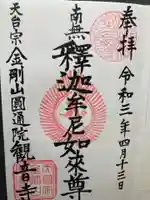 奉拝
令和三年四月十三日
南無
釋迦牟尼如來尊
天台宗金剛山圓通院觀音寺